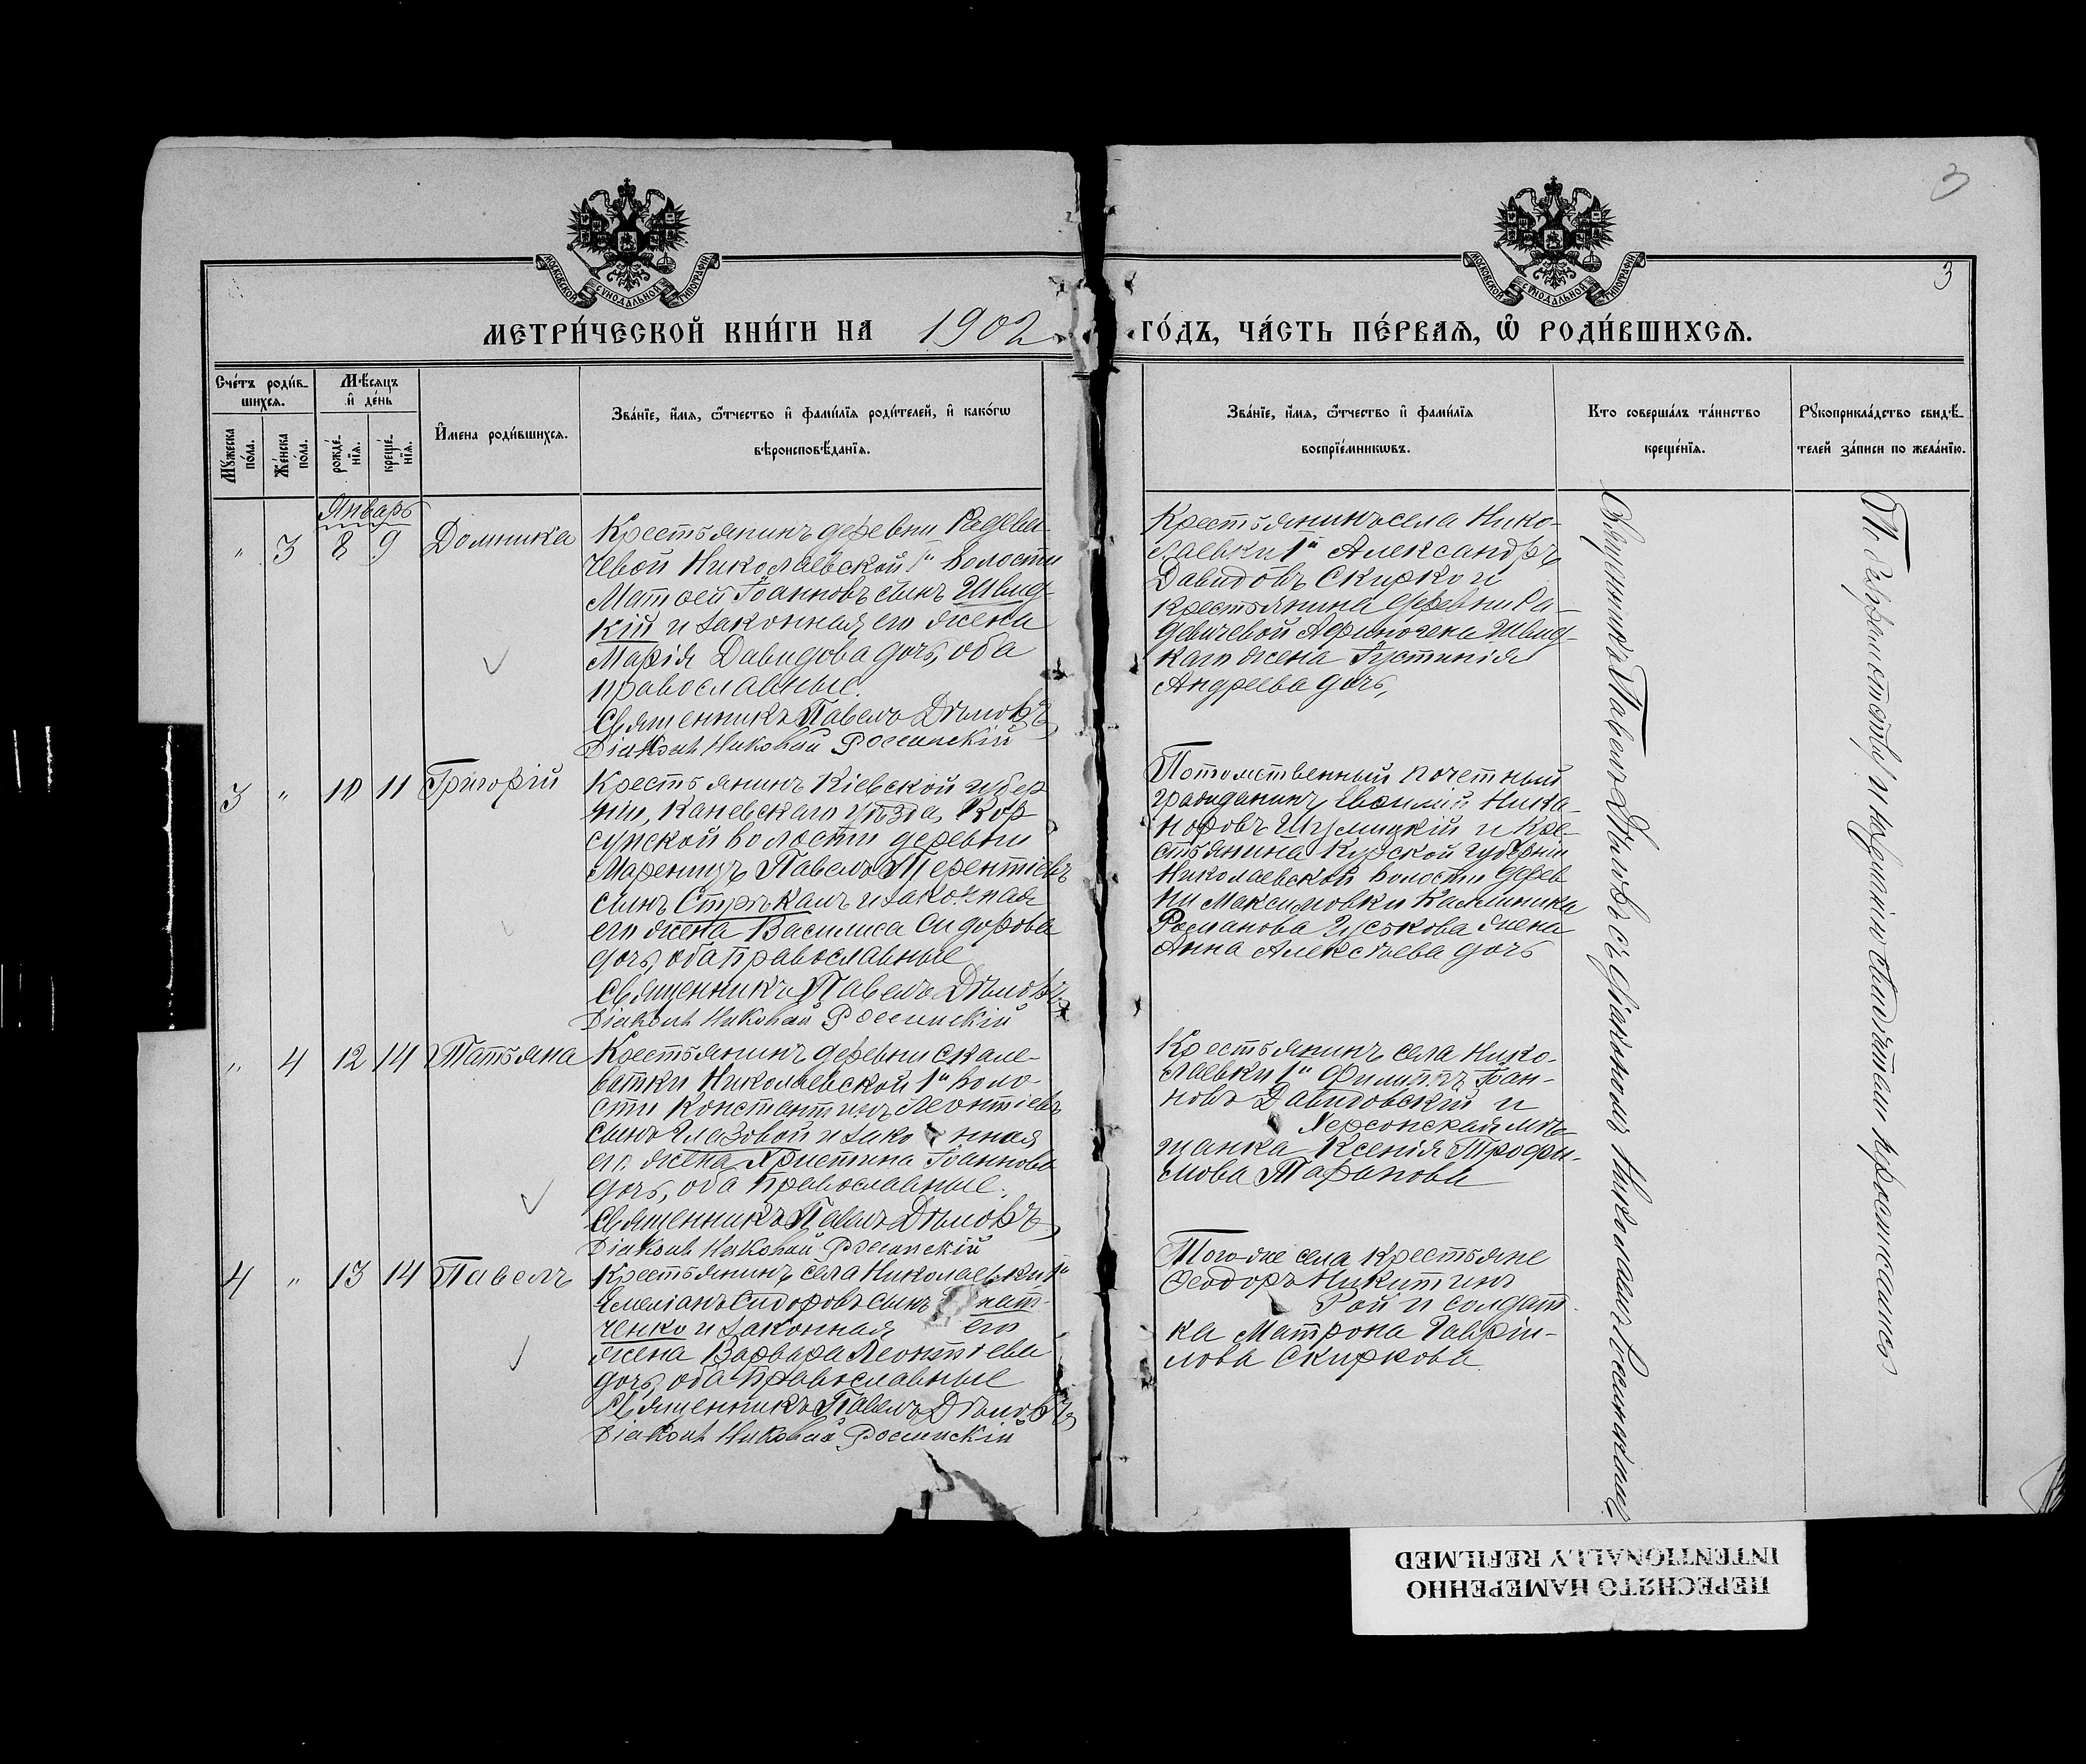 3
3
МОСКОВСКОЙ СѴНОДАЛЬНОЙ ТИПОГРАФІИ
МОСКОВСКОЙ СѴНОДАЛЬНОЙ ТИПОГРАФІИ
МЕТРИ́ЧЕСКОЙ КНИ́ГИ НА 1902 ГО́ДЪ, ЧА́СТЬ ПЕ́РВАѦ, Ѡ҆ РОДИ́ВШИХСѦ.
Сче́тъ роди́в-
шихсѧ.
Мꙋ́жеска по́ла.
Же́нска по́ла.
Мѣ́сѧцъ
и҆ де́нь
рожде́-
нїѧ.
креще́-
нїѧ.
И҆мена роди́вшихсѧ.
Зва́нїе, и҆́мѧ, ѻ҆́тчество и҆ фами́лїѧ роди́телей, и҆ како́гѡ
вѣроисповѣ́данїѧ.
Зва́нїе, и҆́мѧ, ѻ҆́тчество и҆ фами́лїѧ
воспрїе́мникѡвъ.
Кто соверша́лъ та́инство
креще́нїѧ.
Рꙋкоприкла́дство свидѣ́-
телей за́писи по жела́нїю.
Январь
" 3 8 9 Домника
Крестьянинъ деревни Радева-
чевой Николаевской 1й волости
Матѳей Іоанновъ сынъ Швид-
кій и законная его жена
Марія Давидова дочь, оба
православные.
Священникъ Павелъ Дѣловъ
Діаконъ Николай Россинскій
Крестьянинъ села Нико-
лаевки 1й Александръ
Давидовъ Скирко и
крестьянина деревни Ра-
девичевой Афиногена Швид-
каго жена Іустинія
Андреева дочь,
3 " 10 11 Григорій
Крестьянинъ Кіевской губер
ніи, Каневскаго уѣзда, Кор
сунской волости деревни
Мареницъ Павелъ Терентіевъ
сынъ Стрѣкаль и законная
его жена Василиса Сидорова
дочь, оба православные
Священникъ Павелъ Дѣловъ
Діаконъ Николай Россинскій
Потомственный почетный
гражданинъ Василій Ника-
норовъ Шумицкій и кре-
стьянина Курской губерніи
Николаевской волости дерев
ни Максимовки Каллиника
Романова Гуськова жена
Анна Алексѣева дочь
" 4 12 14 Татьяна
Крестьянинъ деревни Скале-
ватки Николаевской 1й воло-
сти Константинъ Леонтіевъ
сынъ Глазовой и законная
его жена Христина Іоаннова
дочь, оба православные.
Священникъ Павелъ Дѣловъ
Діаконъ Николай Россинскій
Крестьянинъ села Нико-
лаевки 1й Филиппъ Іоан-
новъ Давидовскій и
Херсонская мѣ-
щанка Ксенія Трофи-
мова Тафанова
4 " 13 14 Павелъ
Крестьянинъ села Николаевки 1й
Емеліанъ Сидоровъ сынъ нат-
ченко и законная его
жена Варвара Леонтіева
дочь, оба православные
Священникъ Павелъ Дѣловъ
Діаконъ Николай Россинскій
Того-же села крестьяне
Ѳеодоръ Никитинъ
Рой и солдат-
ка Матрона Гаврии-
лова Скиркова
Священникъ Павелъ Дѣловъ съ діакономъ Николаемъ Россинскимъ
По безграмотству и незнанію свидѣтели
ПЕРЕСНЯТО НАМЕРЕННО
INTENTIONALLY REFILMED